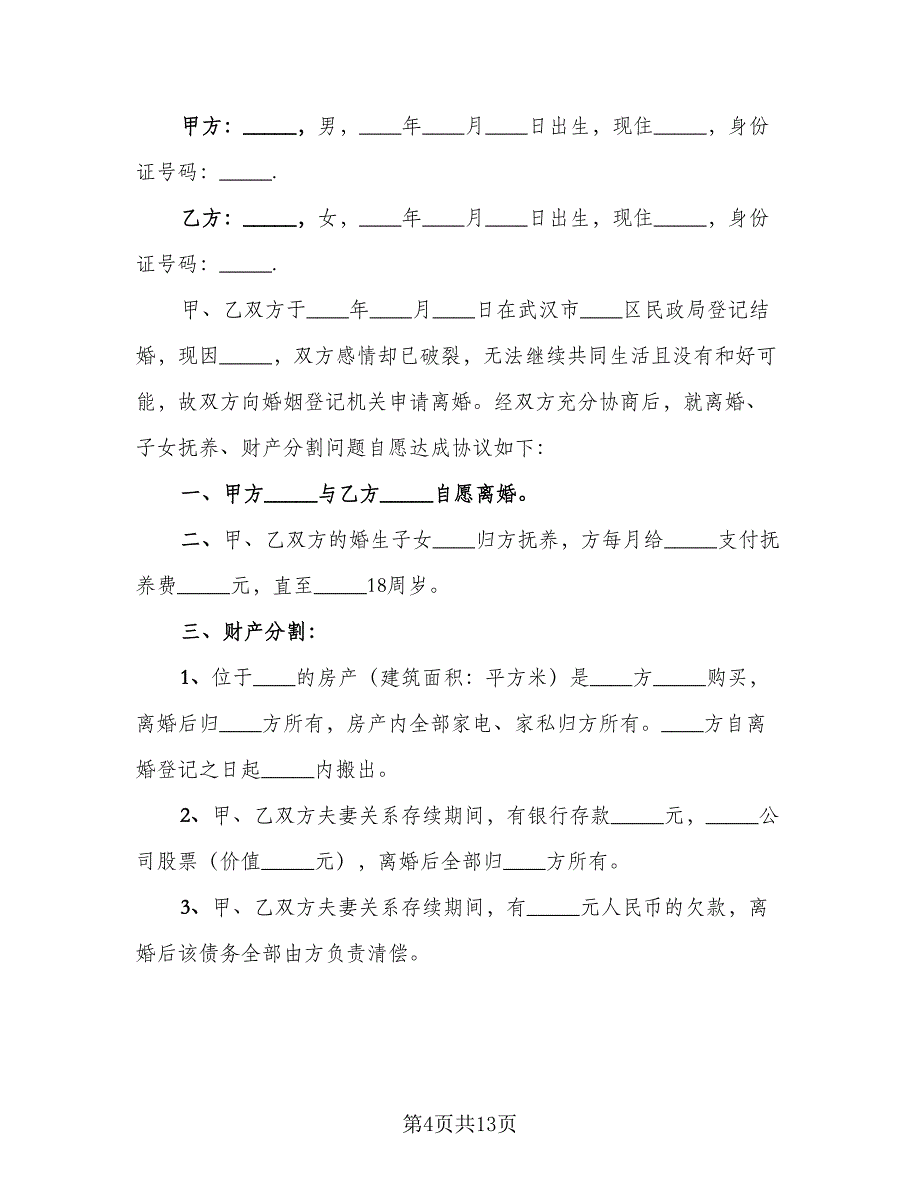 甲方：_____，男，____年____月____日出生，现住_____，身份
证号码：_____.
乙方：_____，女，____年____月____日出生，现住_____，身份
证号码：_____.
甲、乙双方于____年____月____日在武汉市____区民政局登记结
婚，现因_____，双方感情却已破裂，无法继续共同生活且没有和好可
能，故双方向婚姻登记机关申请离婚。经双方充分协商后，就离婚、
子女抚养、财产分割问题自愿达成协议如下：
一、甲方_____与乙方_____自愿离婚。
二、甲、乙双方的婚生子女____归方抚养，方每月给_____支付抚
养费_____元，直至_____18周岁。
三、财产分割：
1、位于____的房产（建筑面积：平方米）是____方_____购买，
离婚后归____方所有，房产内全部家电、家私归方所有。____方自离
婚登记之日起_____内搬出。
2、甲、乙双方夫妻关系存续期间，有银行存款_____元，_____公
司股票（价值_____元），离婚后全部归____方所有。
3、甲、乙双方夫妻关系存续期间，有_____元人民币的欠款，离
婚后该债务全部由方负责清偿。
第4页共13页